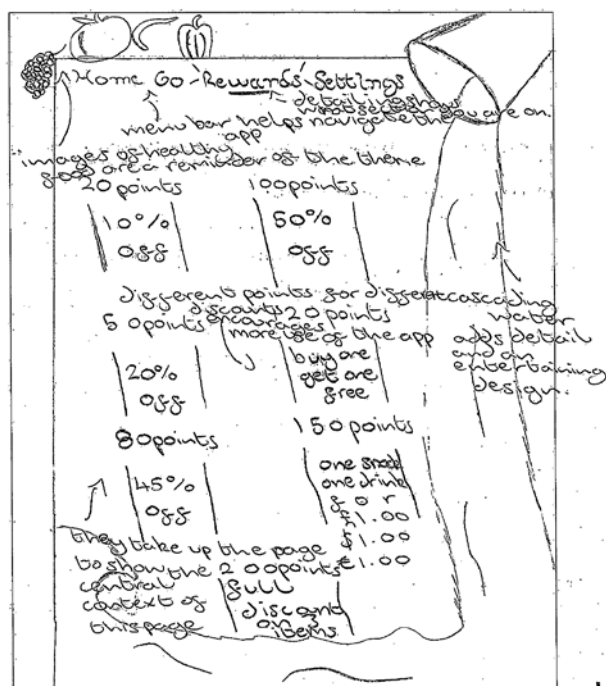 Home Go Rewards Settings
detailing shows
what section they are on.
menu bar helps navigate the
app
images of healthy
food are a reminder of the theme
20 points 100 points
10% off
50% off
different points for different
discounts
encourages
more use of the app
cascading
water
adds detail
and an
entertaining
design.
50 points 20 points
20% off
buy one
get one
free
80 points 150 points
45% off
one snack
one drink
for
£1.00
$1.00
€1.00
they take up the page
to show the
central
context of
this page
200 points
full
discount
on 3
items